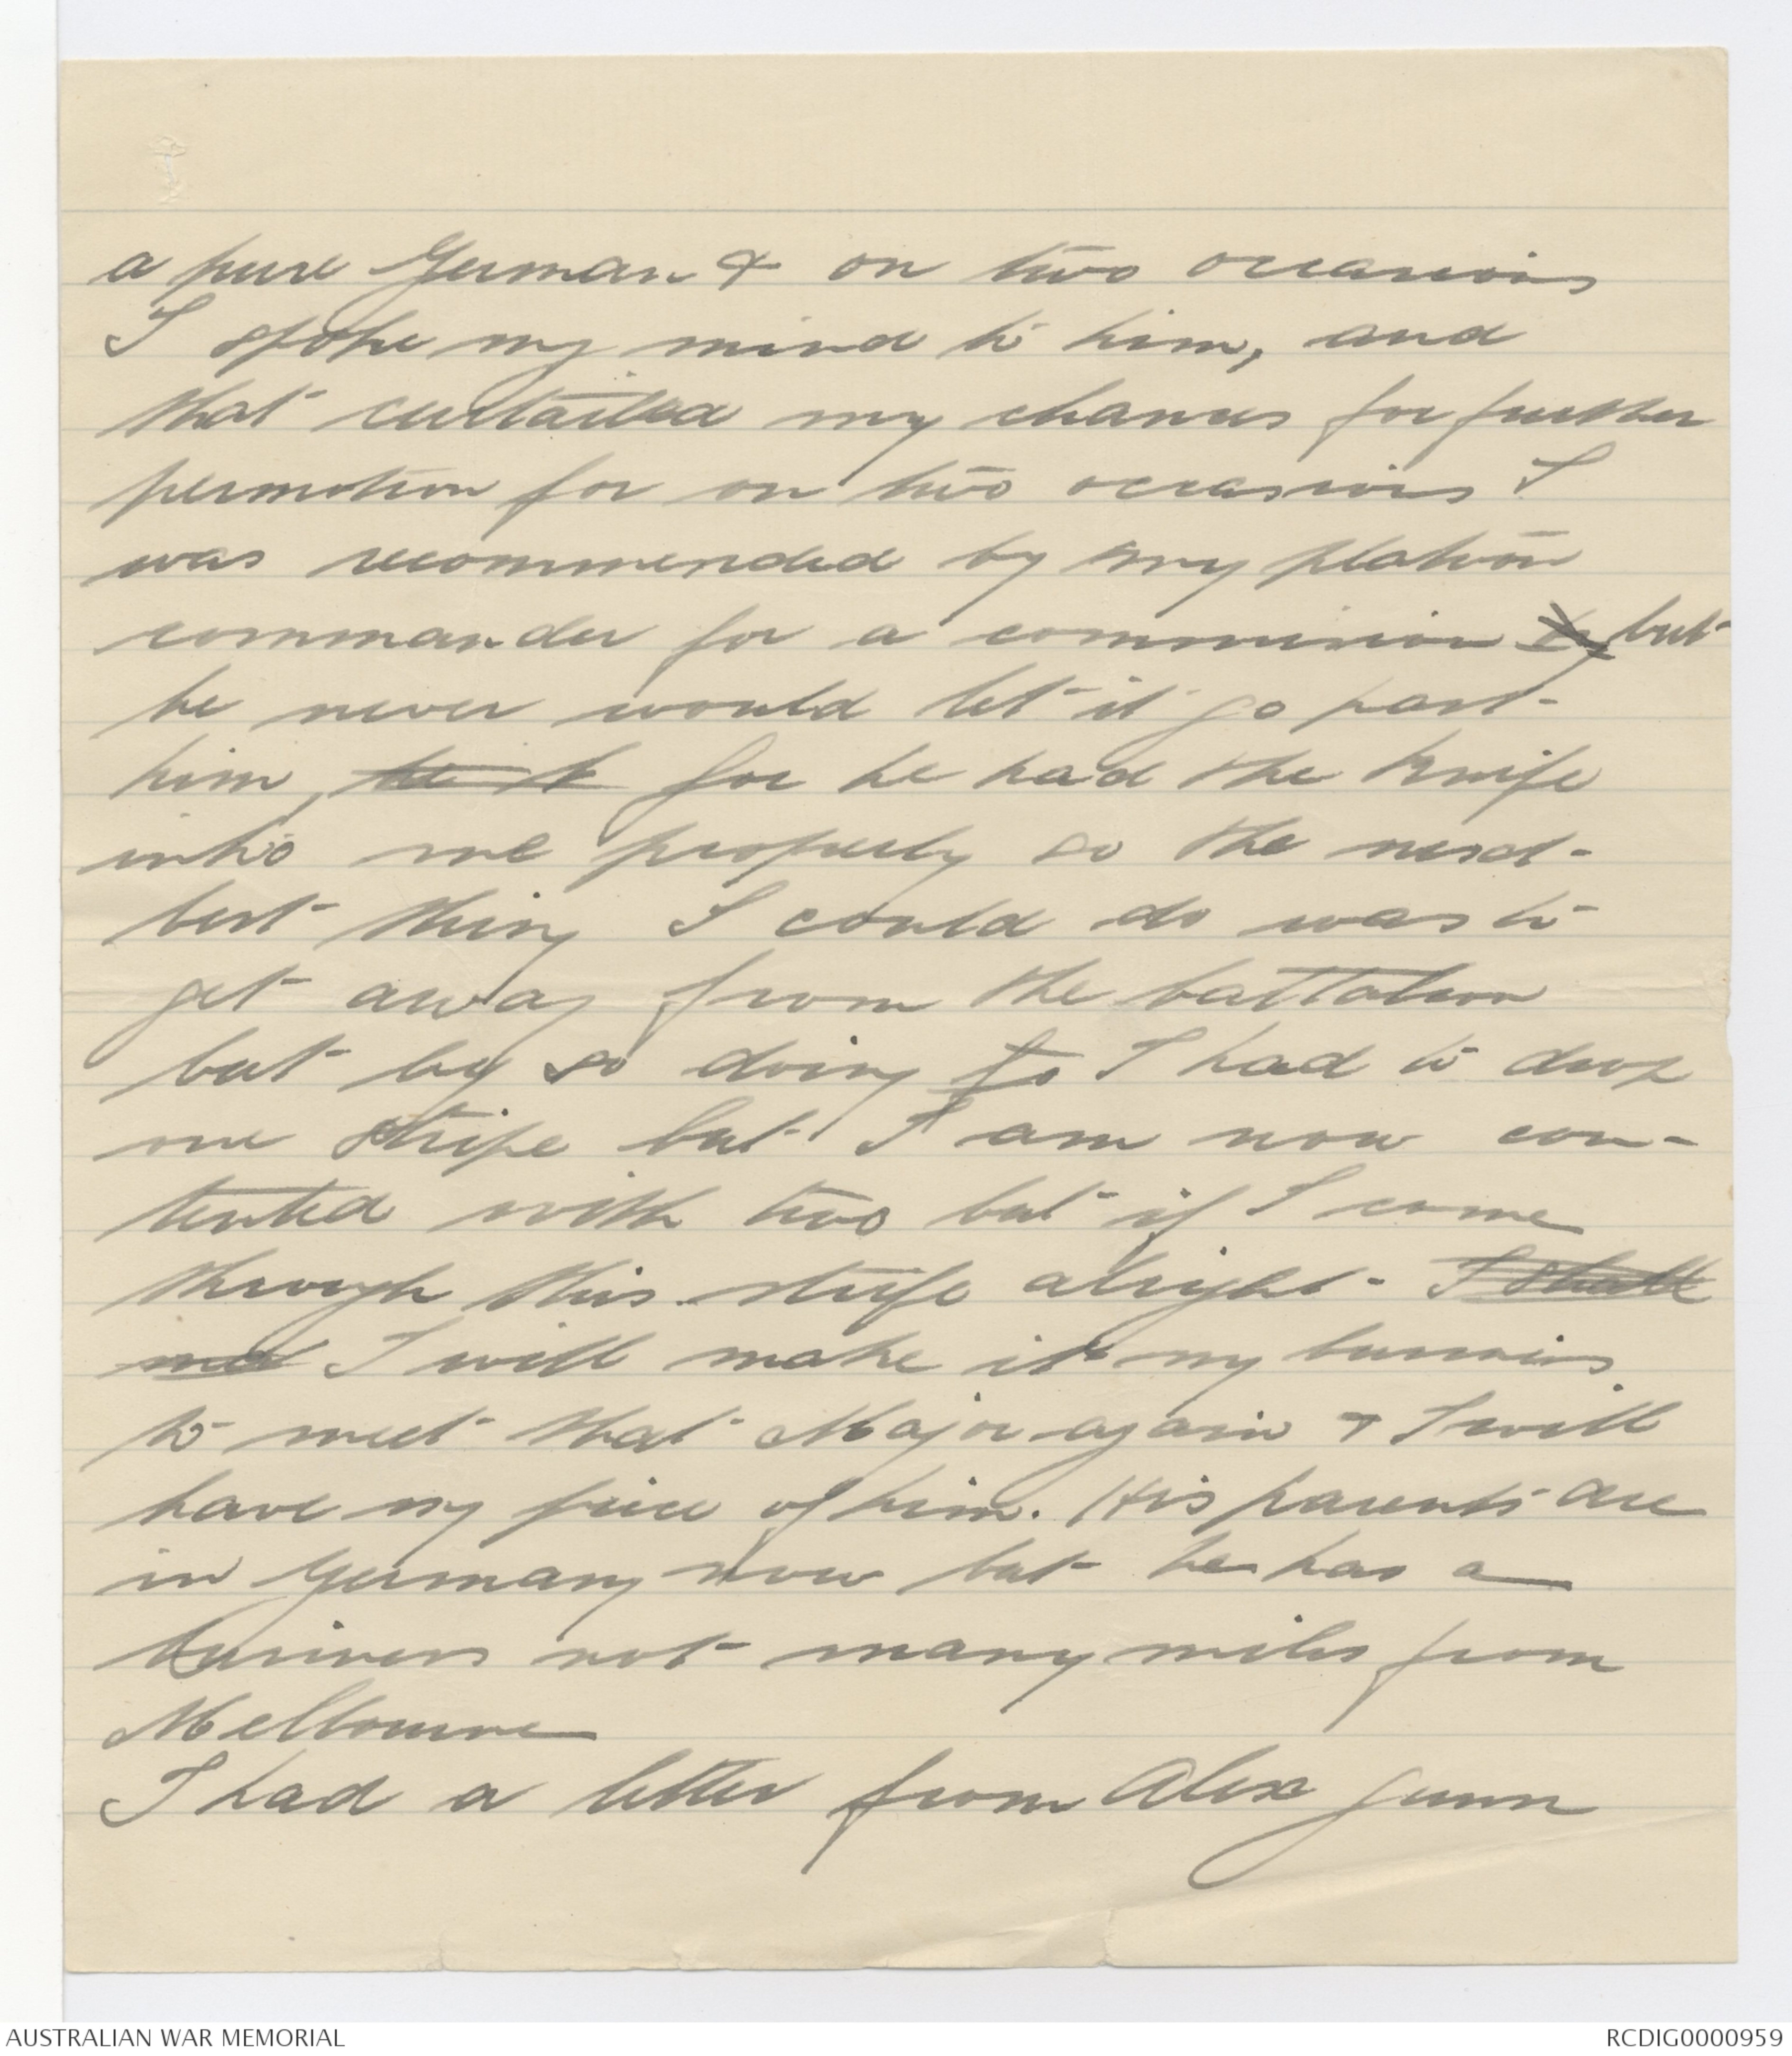 a pure German & on two occasions
I spoke my mind to him, and
that curtailed my chances for further
permotion for on two occasions I
was recommended by my platoon
commander for a commission by but
he never would let it go past
him, for he had the knife
into me properly so the next
best thing I could do was to
get away from the battalion
but by so doing to I had to drop
one stripe but I am now con-
tented with two but if I come
through this strife alright I shall
I will make it my business
to meet that Major again & I will
have my piece of him. His parents are
in Germany now but he has a
business not many miles from
Melbourne
I had a letter from Alex Gunn
AUSTRALIAN WAR MEMORIAL
RCDIG0000959